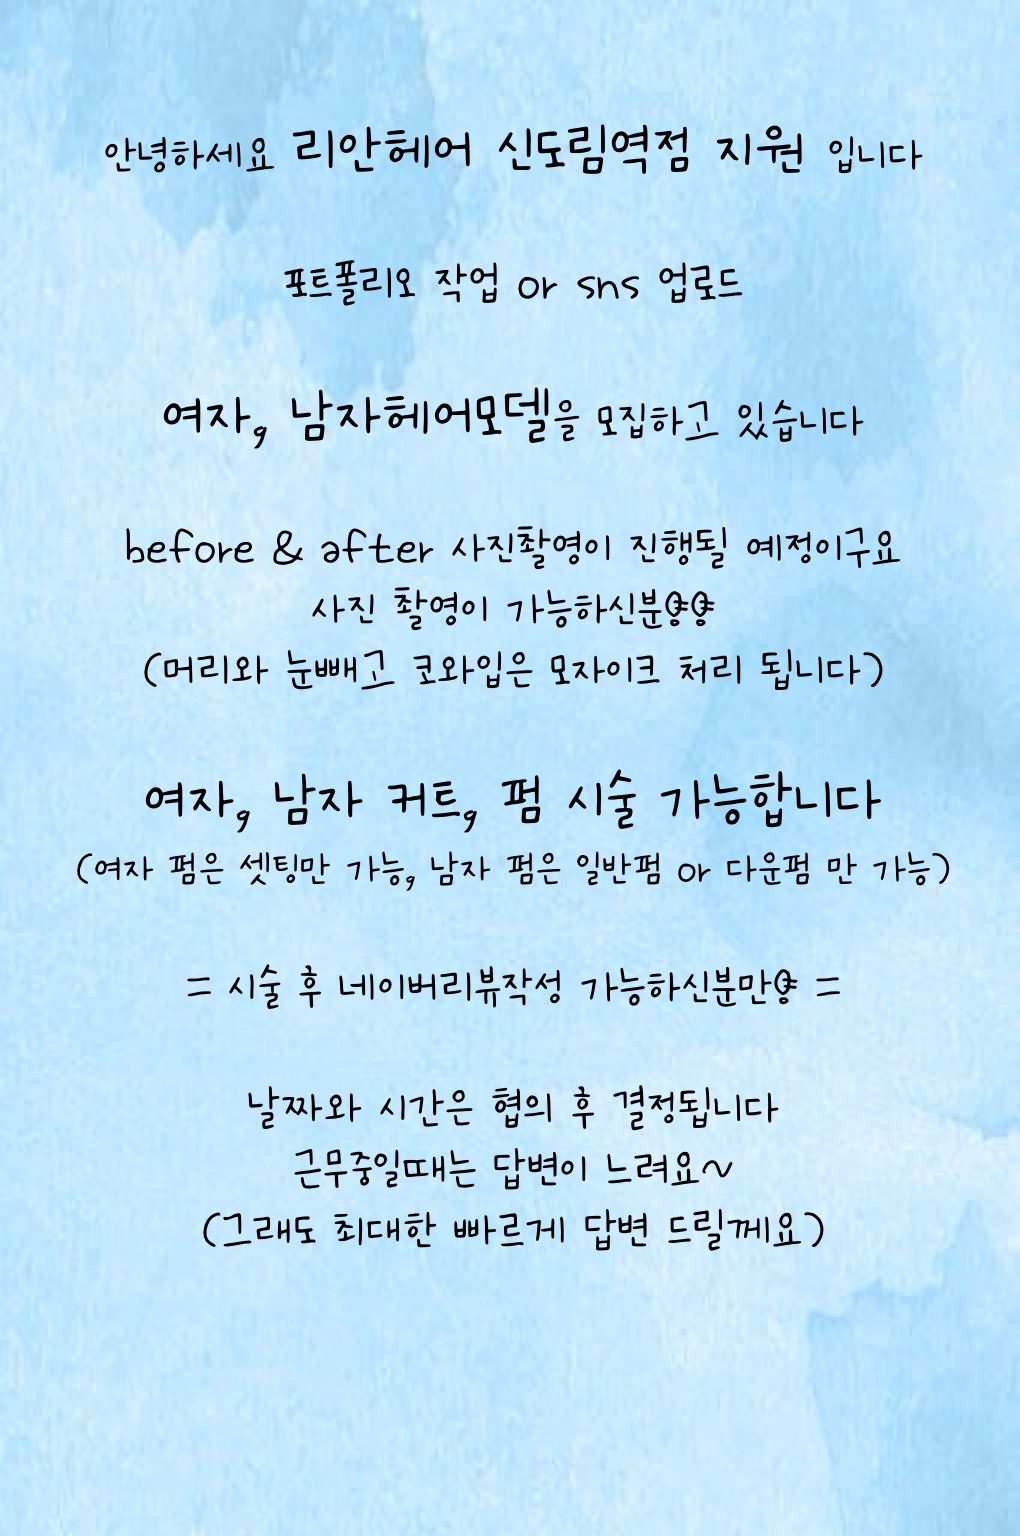 안녕하세요 리안헤어 신도림역점 지원 입니다
포트폴리오 작업 or sns 업로드
여자, 남자헤어모델을 모집하고 있습니다
before & after 사진촬영이 진행될 예정이구요
사진 촬영이 가능하신분
(머리와 눈빼고 코와입은 모자이크 처리 됩니다)
여자, 남자 커트, 펌 시술 가능합니다
(여자 펌은 셋팅만 가능, 남자 펌은 일반펌 or 다운펌 만 가능)
= 시술 후 네이버리뷰작성 가능하신분만 =
날짜와 시간은 협의 후 결정됩니다
근무중일때는 답변이 느려요~
(그래도 최대한 빠르게 답변 드릴께요)